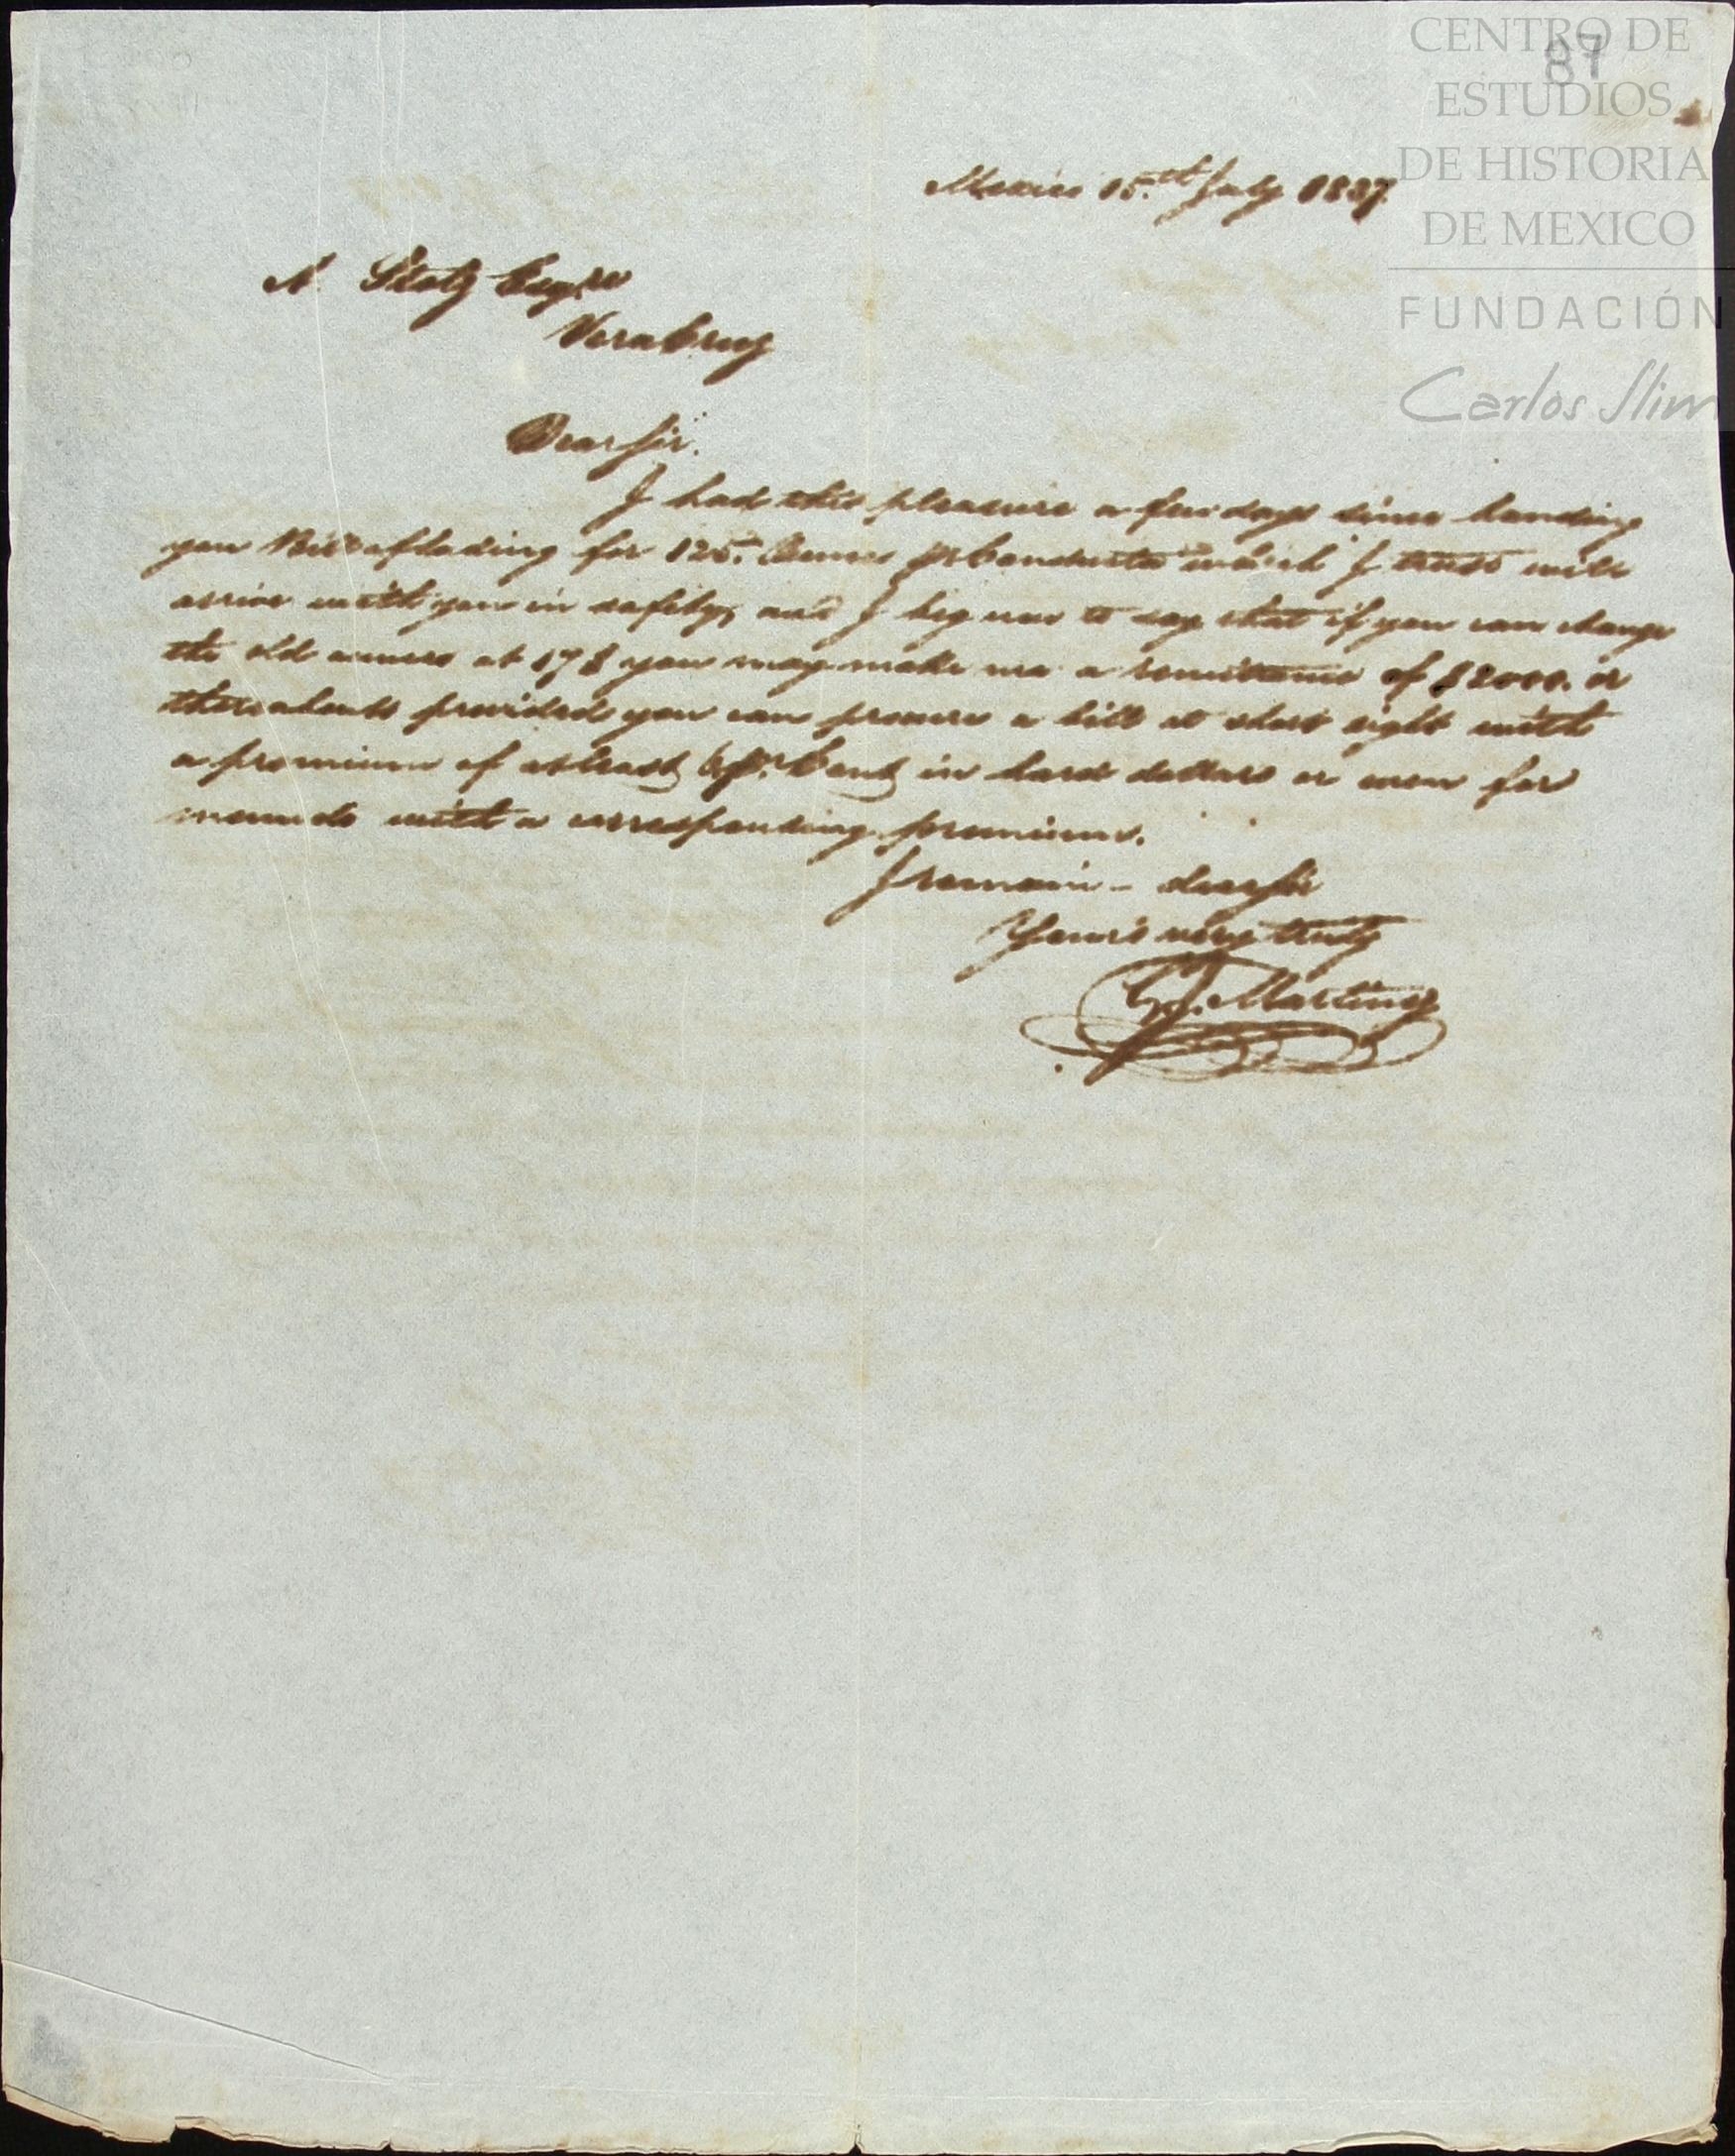 87
CENTRO DE
ESTUDIOS
DE HISTORIA
DE MEXICO
FUNDACIÓN
Carlos Slim
Mexico 15.th July 1837.
N. Stolz Esqre
Vera Cruz
Dear Sir.
I had this pleasure a few days since handing
you Bill of lading for 125. Ounces pr Conducta which I trust will
arrive with you in safety, and I beg now to say that if you can change
the old ounces at 17$ you may make me a remittance of $2000. or
thereabouts provided you can procure a bill at short sight with
a premium of at least 6 pr. Cent in hard dollars or even for
with a corresponding premium.
I remain – dear Sir
Yours very truly
Martinz